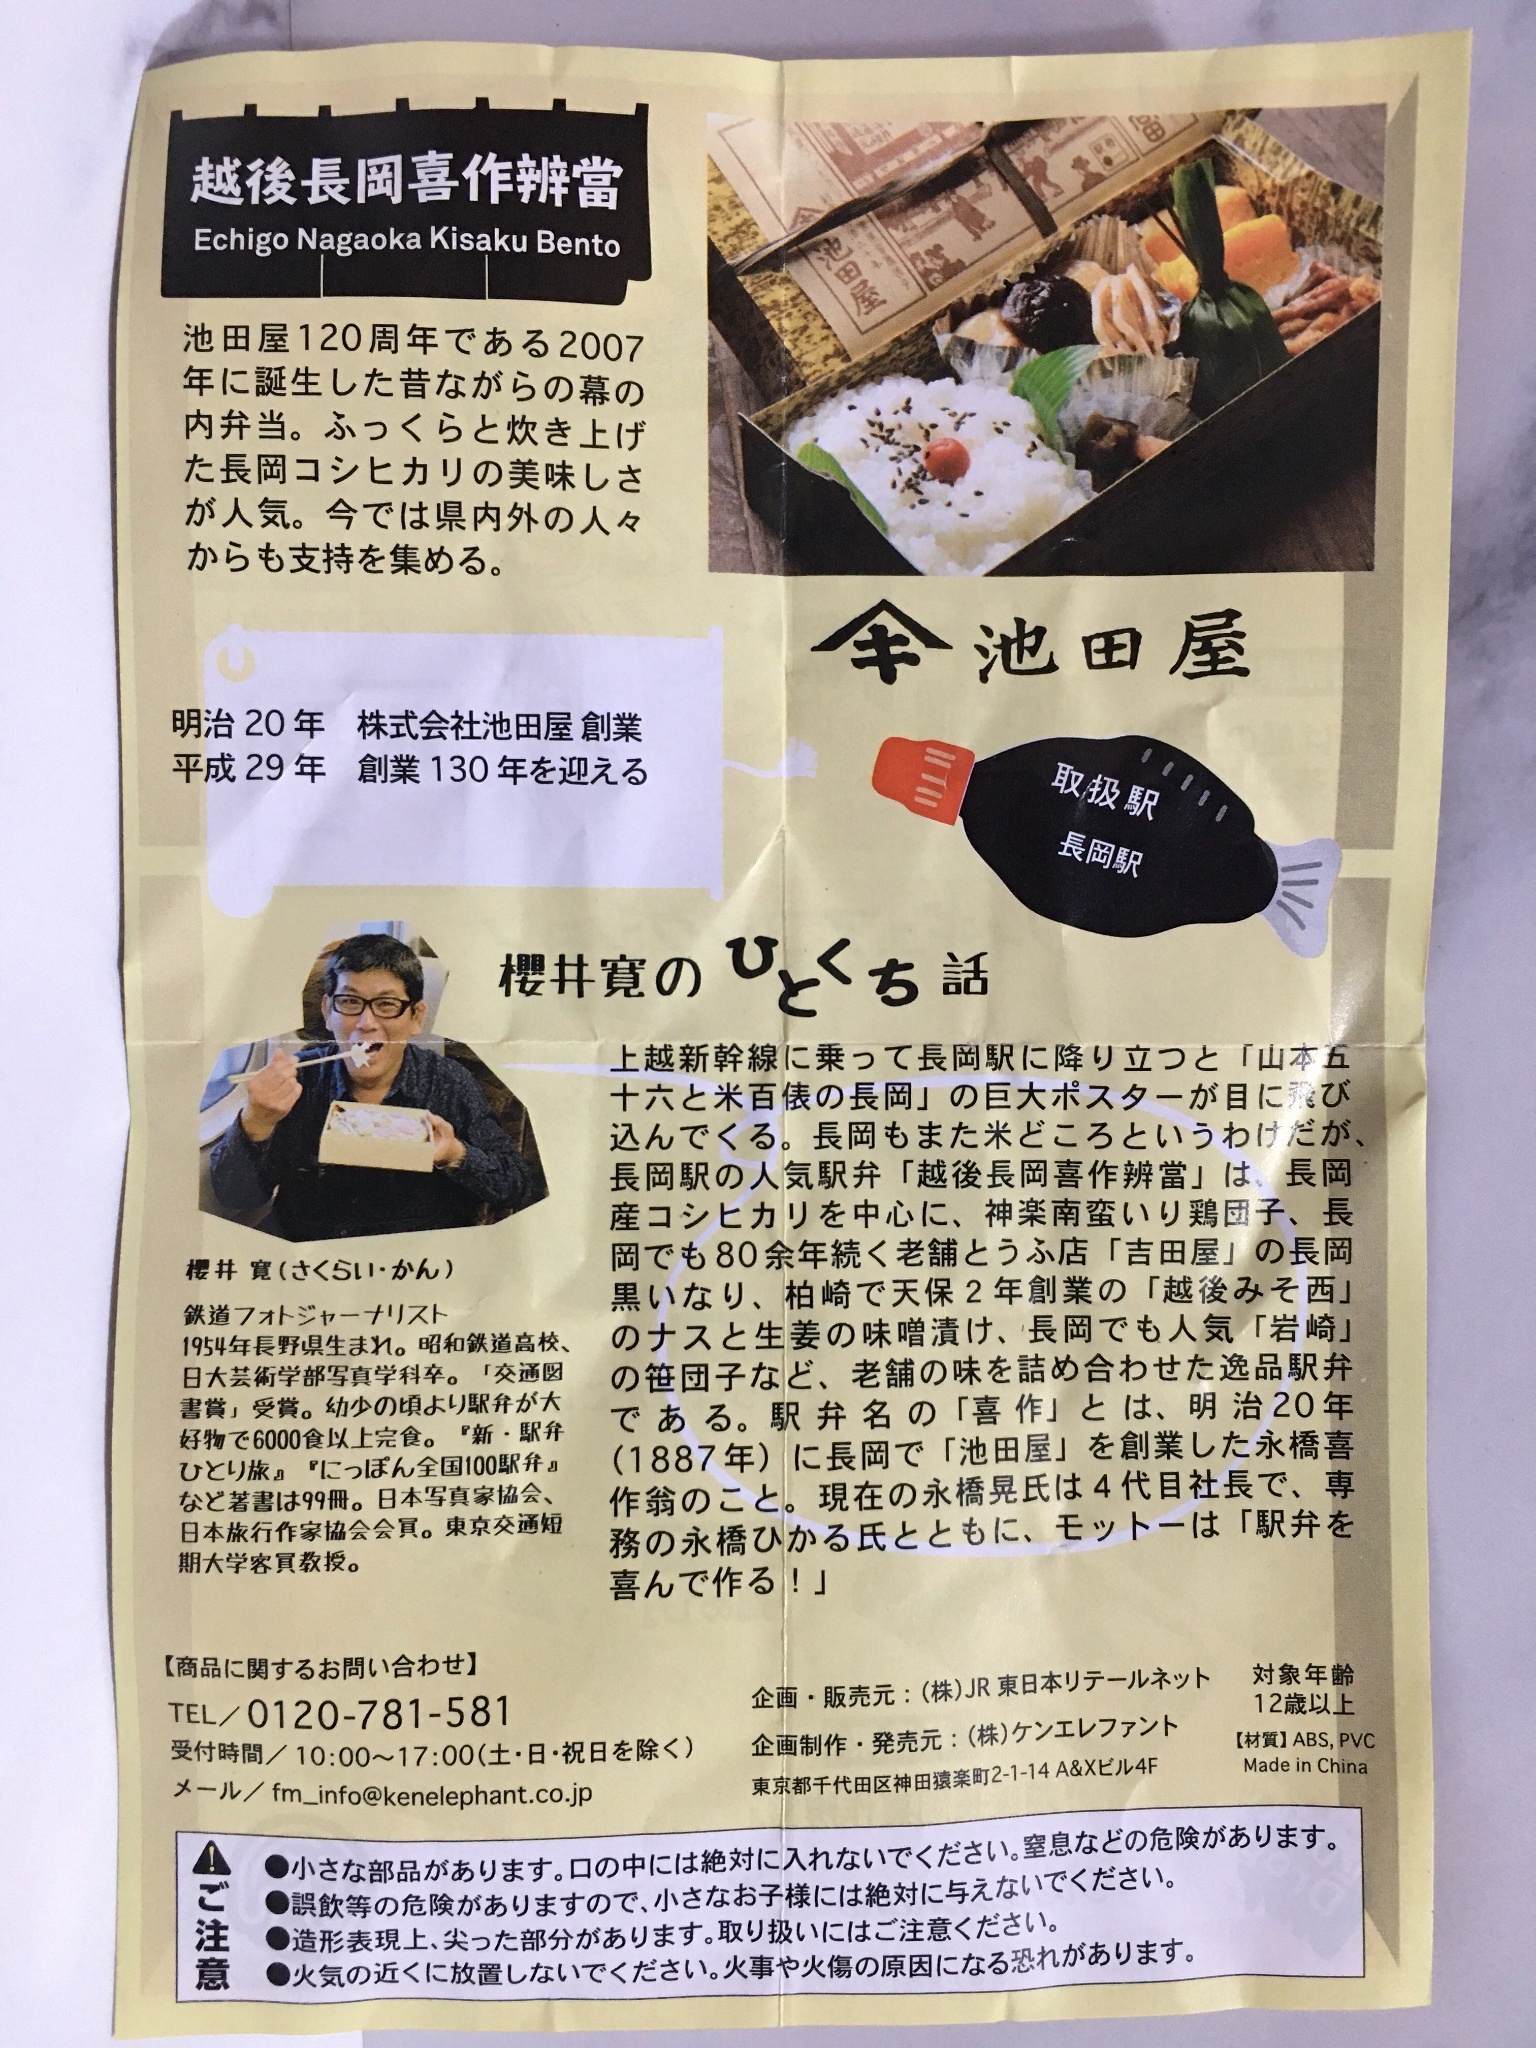 越後長岡喜作辨當
Echigo Nagaoka Kisaku Bento
池田屋120周年である2007
年に誕生した昔ながらの幕の
内弁当。ふっくらと炊き上げ
た長岡コシヒカリの美味しさ
が人気。今では県内外の人々
からも支持を集める。
池田屋
キ 池田屋
明治 20 年 株式会社池田屋 創業
平成 29 年 創業 130 年を迎える
取扱駅
長岡駅
櫻井寛のひとくち話
上越新幹線に乗って長岡駅に降り立つと「山本五
十六と米百俵の長岡」の巨大ポスターが目に飛び
込んでくる。長岡もまた米どころというわけだが、
長岡駅の人気駅弁「越後長岡喜作辨當」は、長岡
産コシヒカリを中心に、神楽南蛮いり鶏団子、長
岡でも80余年続く老舗とうふ店「吉田屋」の長岡
黒いなり、柏崎で天保2年創業の「越後みそ西」
のナスと生姜の味噌漬け、長岡でも人気「岩崎」
の笹団子など、老舗の味を詰め合わせた逸品駅弁
である。駅弁名の「喜作」とは、明治20年
(1887年)に長岡で「池田屋」を創業した永橋喜
作翁のこと。現在の永橋晃氏は4代目社長で、専
務の永橋ひかる氏とともに、モットーは「駅弁を
喜んで作る!」
櫻井 寛(さくらい・かん)
鉄道フォトジャーナリスト
1954年長野県生まれ。昭和鉄道高校、
日大芸術学部写真学科卒。「交通図
書賞」受賞。幼少の頃より駅弁が大
好物で6000食以上完食。『新・駅弁
ひとり旅』『にっぽん全国100駅弁』
など著書は99冊。日本写真家協会、
日本旅行作家協会会員。東京交通短
期大学客員教授。
【商品に関するお問い合わせ】
TEL/0120-781-581
受付時間/10:00〜17:00(土・日・祝日を除く)
メール/fm_info@kenelephant.co.jp
企画・販売元:(株)JR東日本リテールネット
企画制作・発売元:(株)ケンエレファント
東京都千代田区神田猿楽町2-1-14 A&Xビル4F
対象年齢
12歳以上
【材質】ABS, PVC
Made in China
ご注意
●小さな部品があります。口の中には絶対に入れないでください。窒息などの危険があります。
●誤飲等の危険がありますので、小さなお子様には絶対に与えないでください。
●造形表現上、尖った部分があります。取り扱いにはご注意ください。
●火気の近くに放置しないでください。火事や火傷の原因になる恐れがあります。